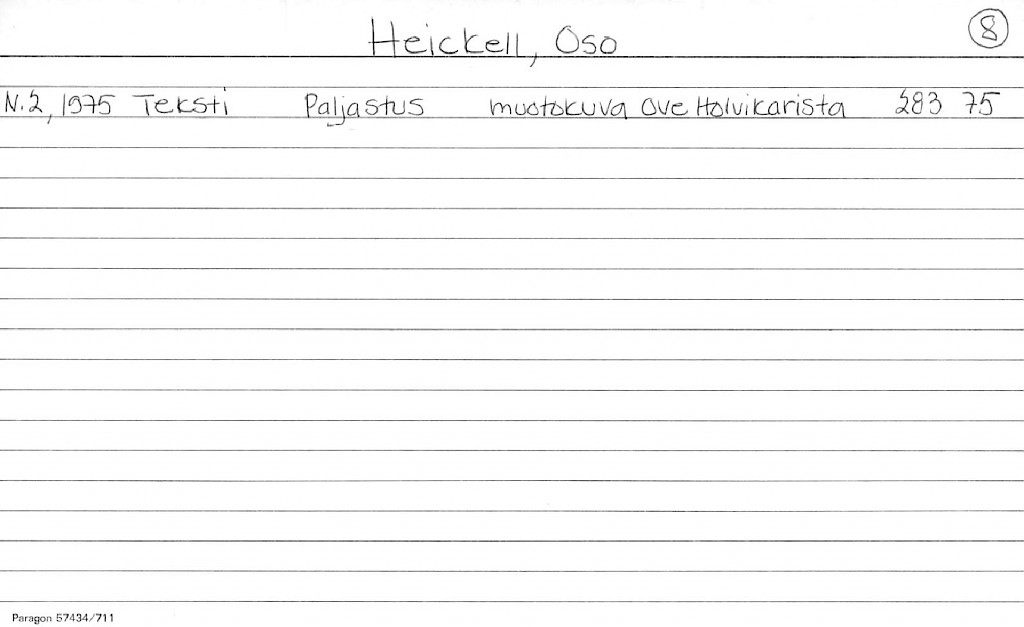 Heickell, Oso
8
N.2, 1975 Teksti Paljastus muotokuva Ove Holvikarista 283 75
Paragon 57434/711